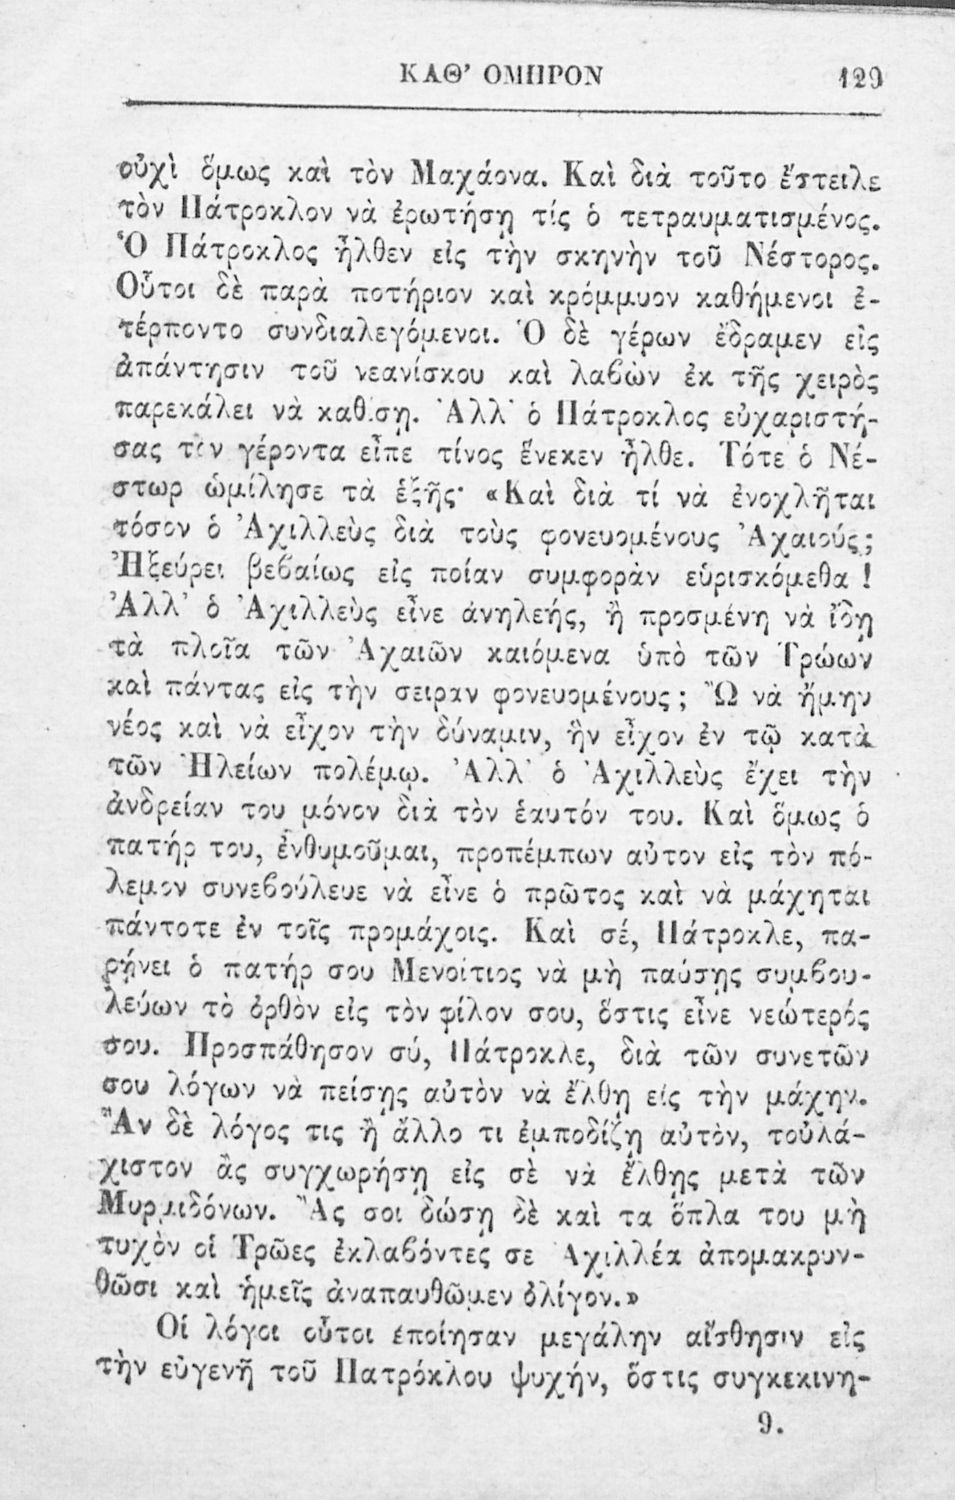 ΚΑΘ’ ΟΜΗΡΟΝ 129
οὐχὶ ὅμως καὶ τὸν Μαχάονα. Καὶ διὰ τοῦτο ἔστειλε
τὸν Πάτροκλον νὰ ἐρωτήσῃ τίς ὁ τετραυματισμένος.
Ὁ Πάτροκλος ἦλθεν εἰς τὴν σκηνὴν τοῦ Νέστορος.
Οὗτοι δὲ παρὰ ποτήριον καὶ κρόμμυον καθήμενοι ἐ-
τέρποντο συνδιαλεγόμενοι. Ὁ δὲ γέρων ἔδραμεν εἰς
ἀπάντησιν τοῦ νεανίσκου καὶ λαβὼν ἐκ τῆς χειρὸς
παρεκάλει νὰ καθίσῃ. Ἀλλ’ ὁ Πάτροκλος εὐχαριστή-
σας τὸν γέροντα εἶπε τίνος ἕνεκεν ἦλθε. Τότε ὁ Νέ-
στωρ ὡμίλησε τὰ ἑξῆς· «Καὶ διὰ τί νὰ ἐνοχλῆται
τόσον ὁ Ἀχιλλεὺς διὰ τοὺς φονευομένους Ἀχαιούς;
Ἠξεύρει βεβαίως εἰς ποίαν συμφορὰν εὑρισκόμεθα !
Ἀλλ’ ὁ Ἀχιλλεὺς εἶνε ἀνηλεής, ἢ προσμένη νὰ ἴδῃ
τὰ πλοῖα τῶν Ἀχαιῶν καιόμενα ὑπὸ τῶν Τρώων
καὶ πάντας εἰς τὴν σειραν φονευομένους ; Ὢ νὰ ἤμην
νέος καὶ νὰ εἶχον τὴν δύναμιν, ἣν εἶχον ἐν τῷ κατὰ
τῶν Ἠλείων πολέμῳ. Ἀλλ’ ὁ Ἀχιλλεὺς ἔχει τὴν
ἀνδρείαν του μόνον διὰ τὸν ἑαυτόν του. Καὶ ὅμως ὁ
πατήρ του, ἐνθυμοῦμαι, προπέμπων αὐτον εἰς τὸν πό-
λεμον συνεβούλευε νὰ εἶνε ὁ πρῶτος καὶ νὰ μάχηται
πάντοτε ἐν τοῖς προμάχοις. Καὶ σέ, Πάτροκλε, πα-
ρῄνει ὁ πατήρ σου Μενοίτιος νὰ μὴ παύσῃς συμβου-
λεύων τὸ ὀρθὸν εἰς τὸν φίλον σου, ὅστις εἶνε νεώτερός
σου. Προσπάθησον σύ, Πάτροκλε, διὰ τῶν συνετῶν
σου λόγων νὰ πείσῃς αὐτὸν νὰ ἔλθῃ εἰς τὴν μάχην.
Ἂν δὲ λόγος τις ἢ ἄλλο τι ἐμποδίζῃ αὐτὸν, τοὐλά-
χιστον ἂς συγχωρήσῃ εἰς σὲ νὰ ἔλθῃς μετὰ τῶν
Μυρμιδόνων. Ἂς σοι δώσῃ δὲ καὶ τα ὅπλα του μὴ
τυχὸν οἱ Τρῶες ἐκλαβόντες σε Ἀχιλλέα ἀπομακρυν-
θῶσι καὶ ἡμεῖς ἀναπαυθῶμεν ὀλίγον.»
Οἱ λόγοι οὗτοι ἐποίησαν μεγάλην αἴσθησιν εἰς
τὴν εὐγενῆ τοῦ Πατρόκλου ψυχήν, ὅστις συγκεκινη-
9.